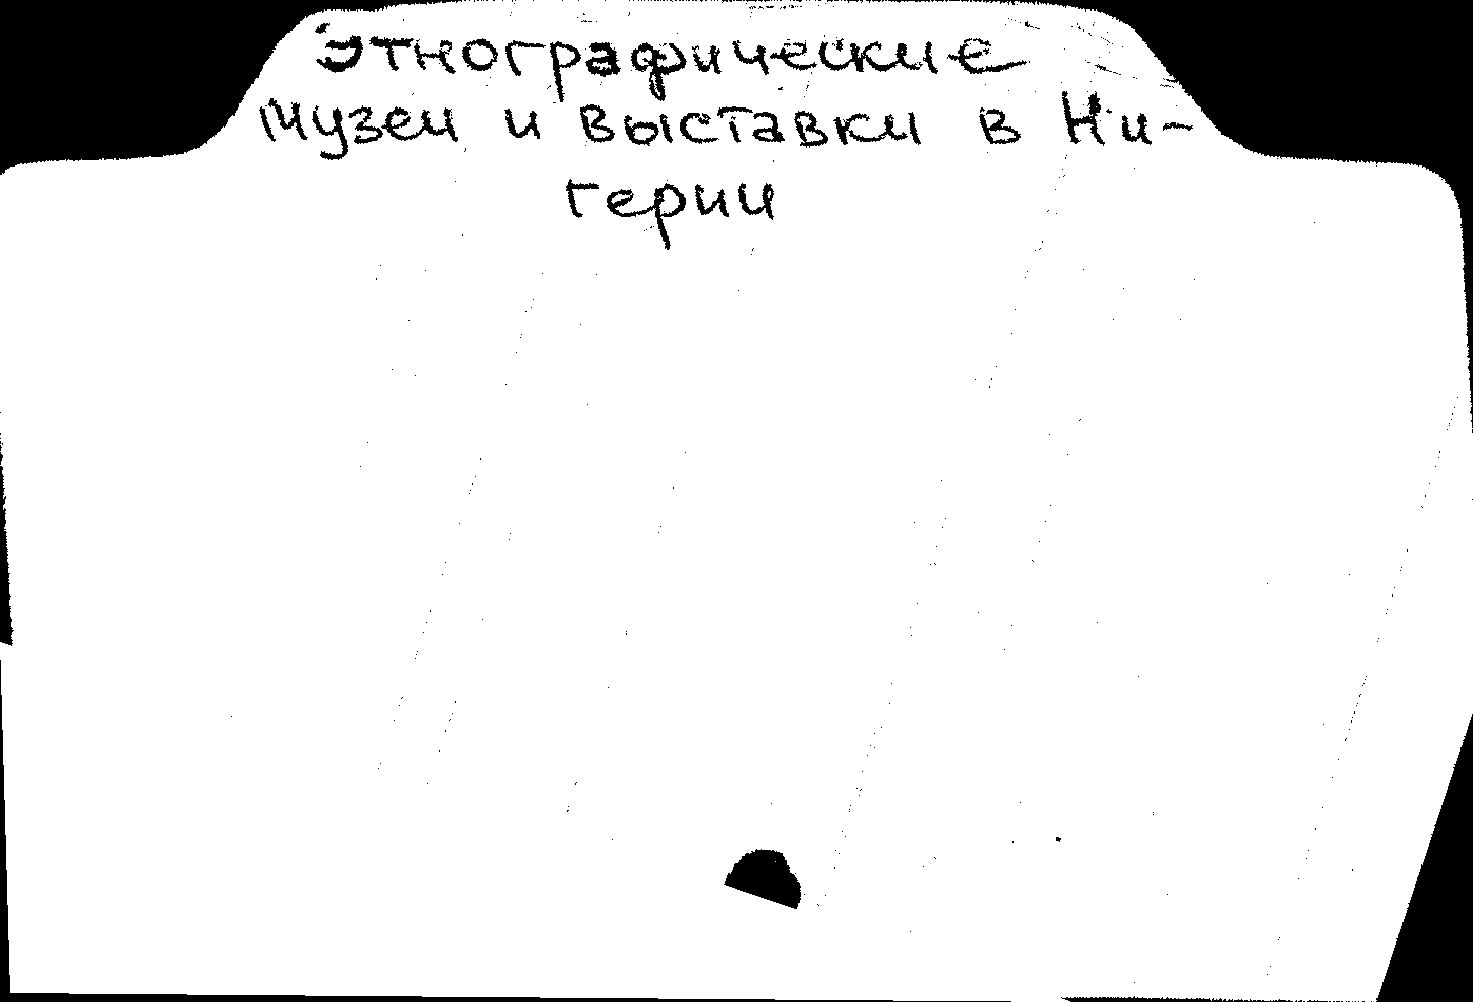 Этнографические
музеи и выставки в Ни-
герии